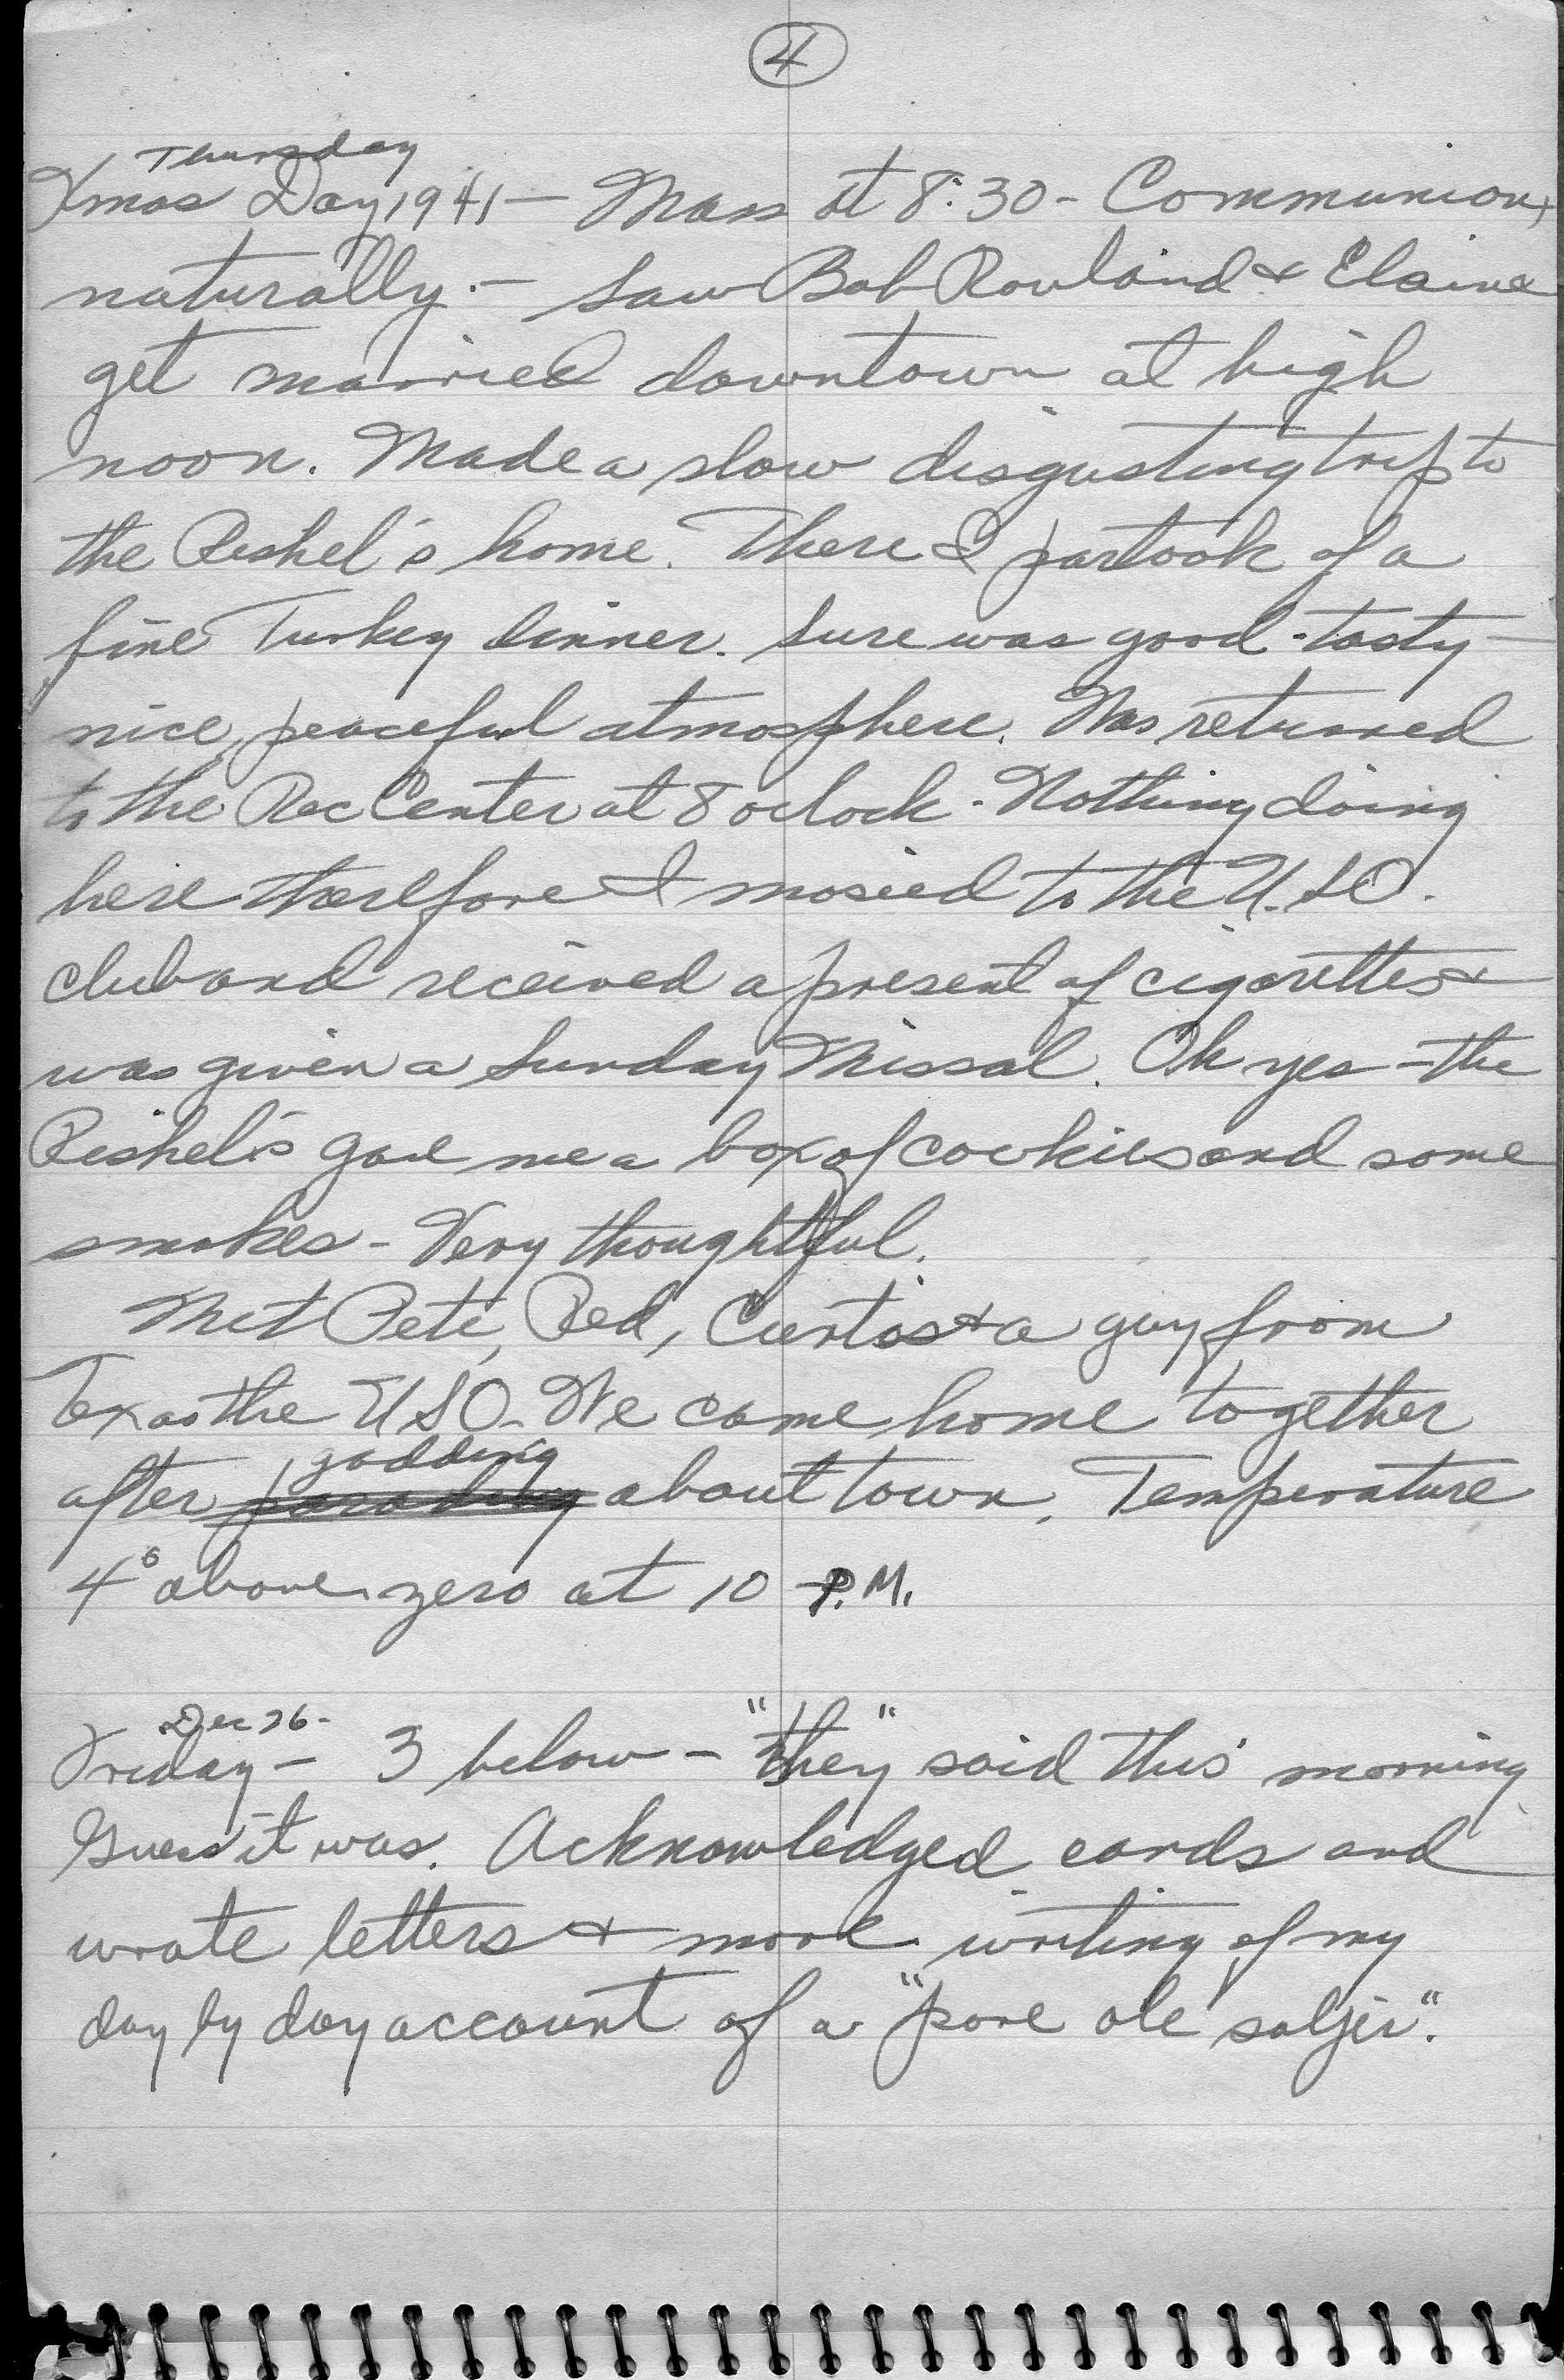 4
Thursday
Xmas Day 1941 - Mass at 8:30 - Communion,
naturally. - Saw Bob Rowland & Elaine
get married downtown at high
noon. Made a slow disgusting trip to
the Rishel's home. There I partook of a
fine Turkey dinner. Sure was good - tasty -
nice, peaceful atmosphere. Was returned
to the Rec Center at 8 oclock - Nothing doing
here therefore I mosied to the U.S.O.
club and received a present of cigarettes &
was given a Sunday Missal. Oh yes - the
Rishel's gave me a box of cookies and some
smokes - Very thoughtful.
Met Pete, Red, Curtis & a guy from
Texas the USO - We came home together
gadding
after parading about town. Temperature
4° above zero at 10 P.M.
Dec 26 -
Friday - 3 below - "they" said this morning
Guess it was. Acknowledged cards and
wrote letters & more writing of my
day by day account of a "pore ole soljer".